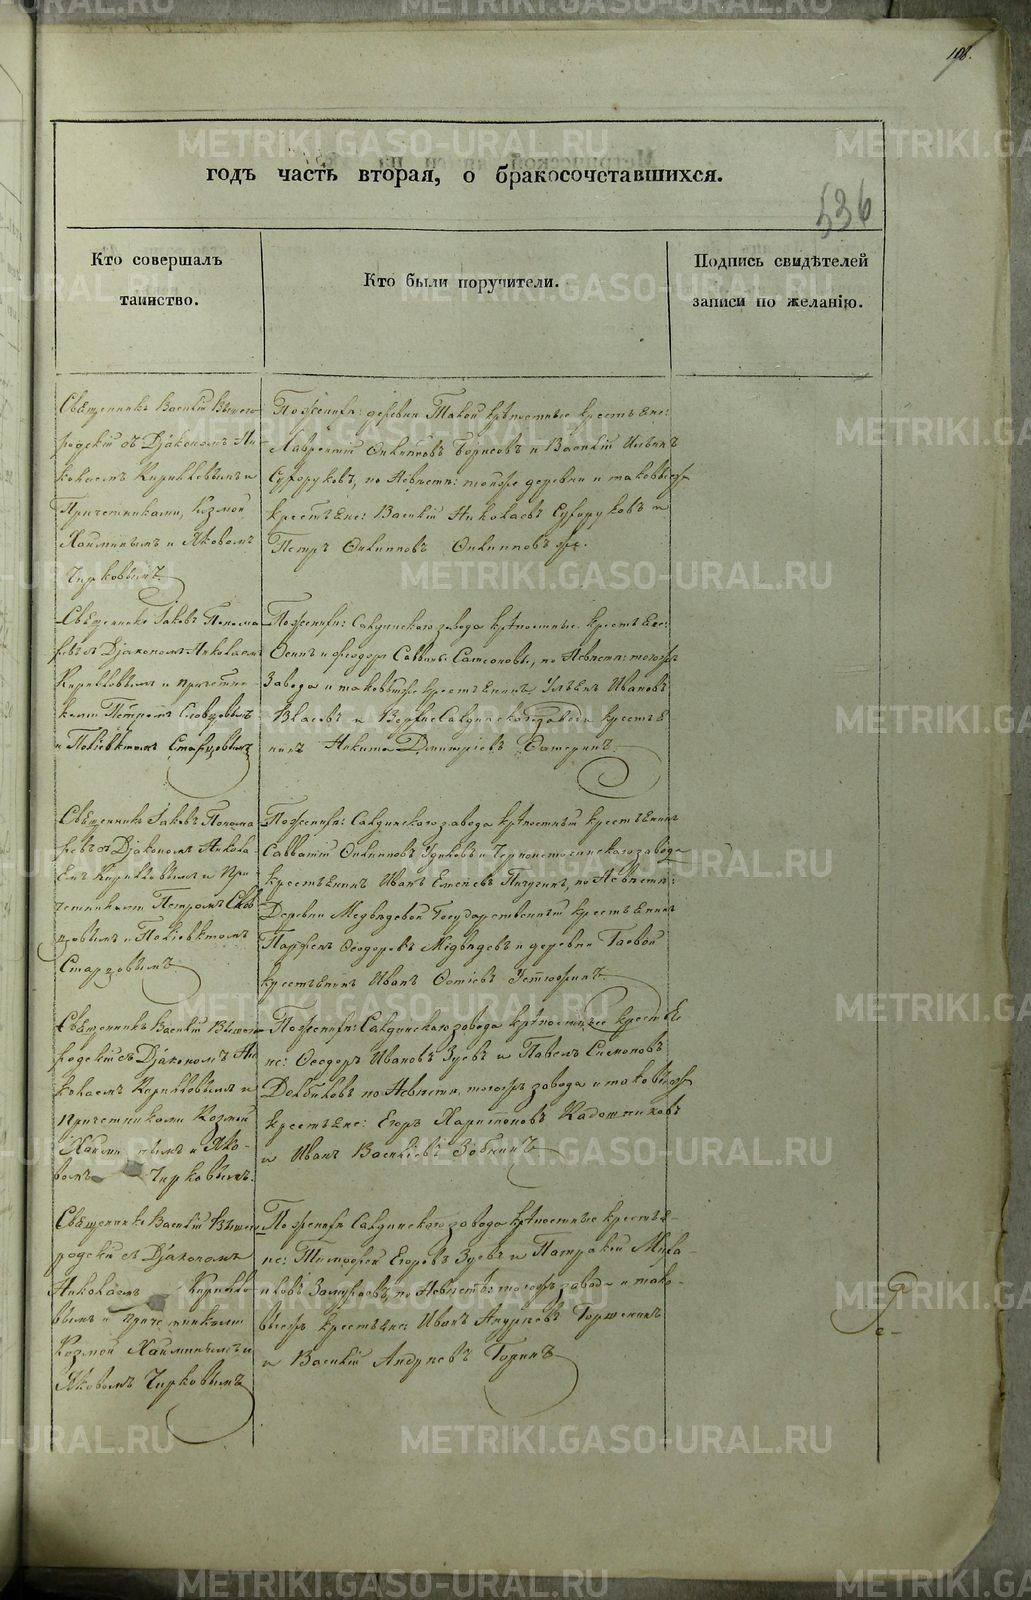 108.
годъ часть вторая, о бракосочетавшихся.
536
Кто совершалъ
таинство.
Кто были поручители.
Подпись свидѣтелей
записи по желанію.
Священникъ Василій Вышего-
родскій съ Діакономъ Ни-
колаемъ Кирилловымъ и
Причетниками, Козмой
и Яковомъ
Чирковымъ
По женихѣ: деревни крѣпостные крестьяне:
Лаврентій Филиповъ Борисовъ и Василій Ильинъ
Сухоруковъ, по Невѣстѣ: тойже деревни и таковыеж
крестьяне: Василій Николаевъ Сухоруковъ и
Петръ Филиповъ Филиповъ же.
Священникъ Іаковъ Понома-
ревъ съ Діакономъ Николаемъ
Кирилловымъ и причетни-
ками Петромъ Словцовымъ
и Поліевктомъ Старцовымъ
По женихѣ: Салдинского завода крѣпостные крестьяне:
Осипъ и Феодоръ Саввины Самсоновы, по Невѣстѣ: тогожъ
Завода и таковыеже крестьянинъ Ульянъ Ивановъ
Власовъ и Верхнесалдинскогозавода крестья-
нинъ Никита Дмитріевъ
Священникъ Іаковъ Понома-
ревъ съ Діакономъ Никола-
емъ Кирилловымъ и При-
четниками Петромъ Слов-
цовымъ и Поліевктомъ
Старцовымъ
По женихѣ: Салдинского завода крѣпостный крестьянинъ
Савватій Филиповъ и Черноисточинского завода
крестьянинъ Иванъ по Невѣстѣ:
Деревни Медвѣдевой Государственный крестьянинъ
Парфенъ Феодоровъ Медвѣдевъ и деревни Гаевой
крестьянинъ Иванъ Фотіевъ Устюжинъ
Священникъ Василій Вышего-
родскій съ Діакономъ Ни-
колаемъ Кирилловымъ и
Причетниками Козмой
и Яко-
вомъ Чирковымъ.
По женихѣ: Салдинского завода крѣпостные крестья-
не: Феодоръ Ивановъ Зуевъ и Павелъ Симоновъ
Долбиловъ по Невѣстѣ, тогожъ завода и таковыеж
крестьяне: Егоръ Харитоновъ Кадошниковъ
и Иванъ Василіевъ Зобнинъ
Священникъ Василій Вышего-
родскій съ Діакономъ
Николаемъ Кирилло-
вымъ и причетниками
Козмой и
Яковомъ Чирковымъ
По женихѣ Салдинского завода крѣпостные крестья-
не: Тимофей Егоровъ Зуевъ и Патракій Миха-
иловъ Замураевъ, по Невѣстѣ: тогожъ завода и тако-
выежъ крестьяне: Иванъ Андреевъ Горшенинъ
и Василій Андреевъ Горинъ
METRIKI.GASO-URAL.RU